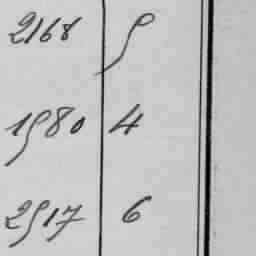 2168 5
1580 4
2517 6